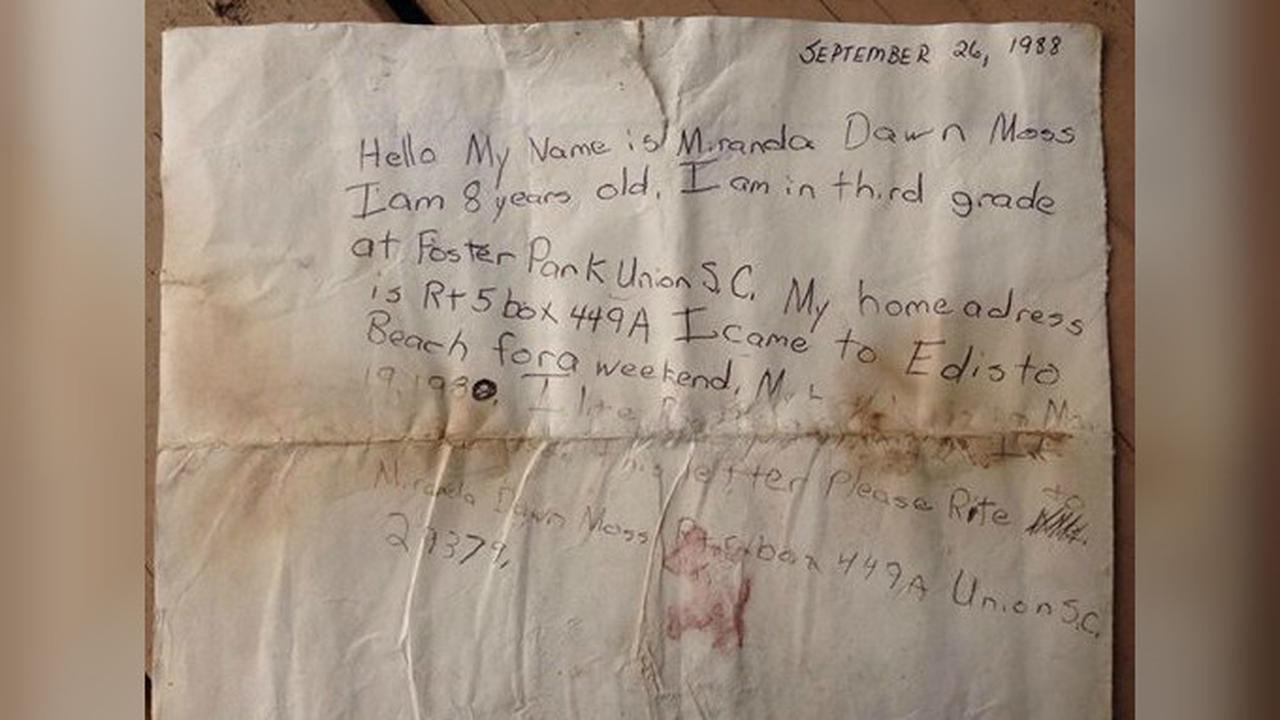 SEPTEMBER 26, 1988
Hello My Name is Miranda Dawn Moss
I am 8 years old. I am in third grade
at Foster Park Union S.C. My home adress
is Rt 5 box 449A I came to Edisto
Beach for a weekend,
19, 1980. I
letter Please Rite to
Miranda Dawn Moss Rt 5 box 449A Union S.C.
29379,